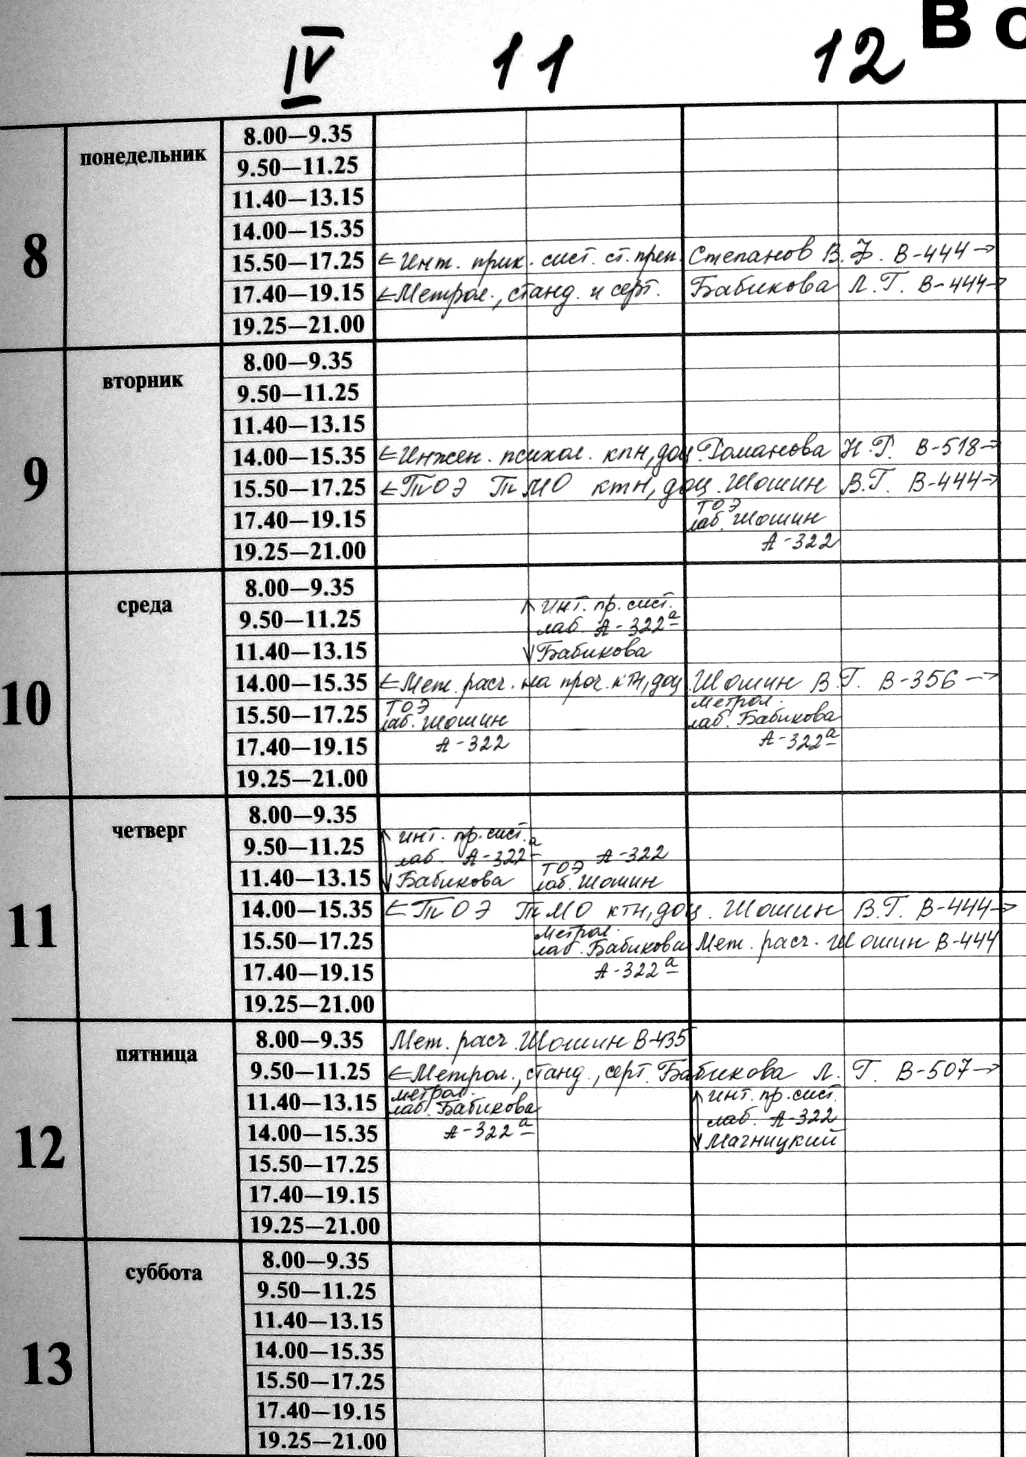 В
IV 11 12
8 понедельник
8.00—9.35
9.50—11.25
11.40—13.15
14.00—15.35
15.50—17.25 ←Инт. прик. сист. ст. преп. Степанов В. Ф. В-444→
17.40—19.15 ←Метрол., станд. и серт. Бабикова Л. Г. В-444→
19.25—21.00
9 вторник
8.00—9.35
9.50—11.25
11.40—13.15
14.00—15.35 ←Инжен. психол. кпн, доц. Романова Н. Г. В-518→
15.50—17.25 ←ТОЭ ТМО ктн, доц. Шошин В.Г. В-444→
17.40—19.15 ТОЭ
лаб. Шошин
19.25—21.00 А-322
10 среда
8.00—9.35 Инт. пр. сист.
9.50—11.25 лаб. А-322а
11.40—13.15 Бабикова
14.00—15.35 ←Мет. расч. на проч. ктн, доц. Шошин В.Г. В-356→
15.50—17.25 ТОЭ Метрол.
лаб. Шошин лаб. Бабикова
17.40—19.15 А-322 А-322а
19.25—21.00
11 четверг
8.00—9.35 Инт. пр. сист.
9.50—11.25 лаб. А-322а А-322
ТОЭ
11.40—13.15 Бабикова лаб. Шошин
14.00—15.35 ←ТОЭ ТМО ктн, доц. Шошин В.Г. В-444→
Метрол.
15.50—17.25 лаб. Бабикова Мет. расч. Шошин В-444
17.40—19.15 А-322а
19.25—21.00
12 пятница
8.00—9.35 Мет. расч. Шошин В-435
9.50—11.25 ←Метрол., станд., серт. Бабикова Л. Г. В-507→
метрол. Инт. пр. сист.
11.40—13.15 лаб. Бабикова лаб. А-322
14.00—15.35 А-322а Магницкий
15.50—17.25
17.40—19.15
19.25—21.00
13 суббота
8.00—9.35
9.50—11.25
11.40—13.15
14.00—15.35
15.50—17.25
17.40—19.15
19.25—21.00